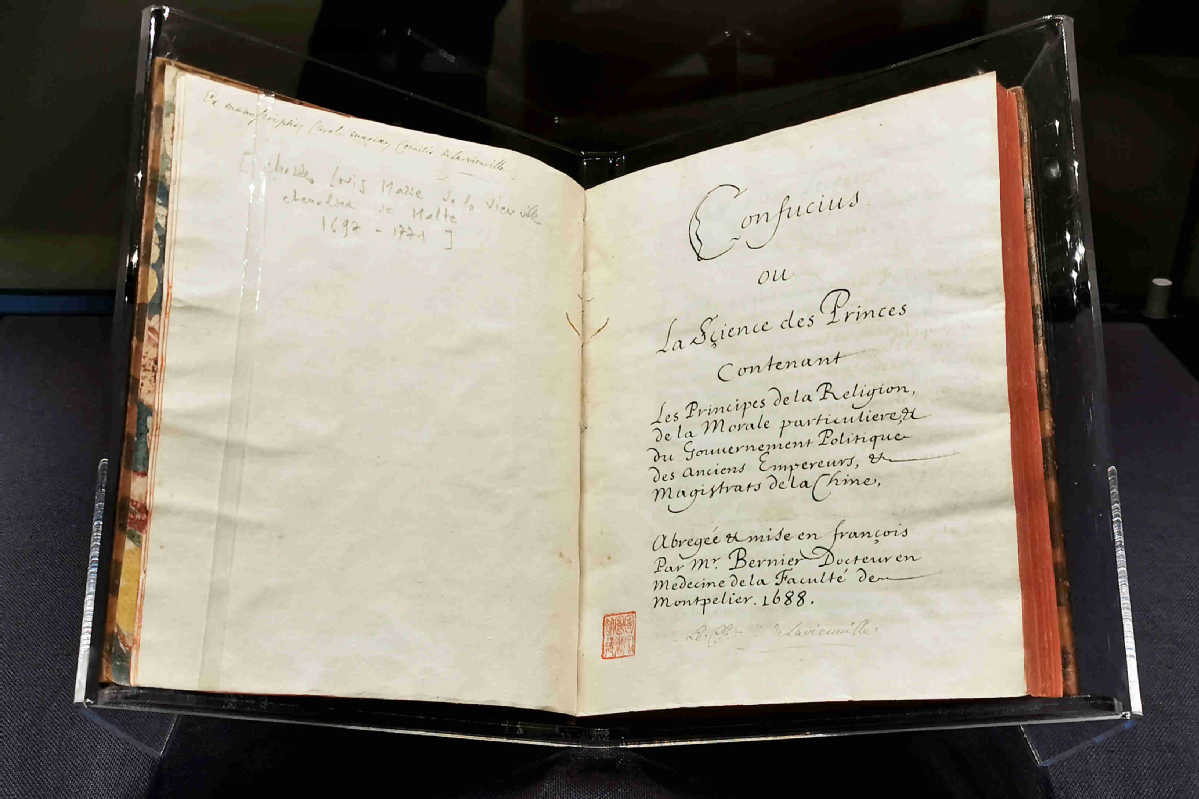 Ex manuscriptis Caroli Comitis de Lavieuville.
[ Charles Louis Marie de la Vieuville
chevalier de Malte
1697 - 1771 ]
Confucius
ou
La Science des Princes
Contenant
Les Principes de la Religion,
de la Morale particuliere, &
du Gouvernement Politique
des anciens Empereurs, &
Magistrats de la Chine,
Abregée & mise en françois
Par Mr. Bernier Docteur en
Medecine de la Faculté de
Montpelier. 1688.
de Lavieuville.